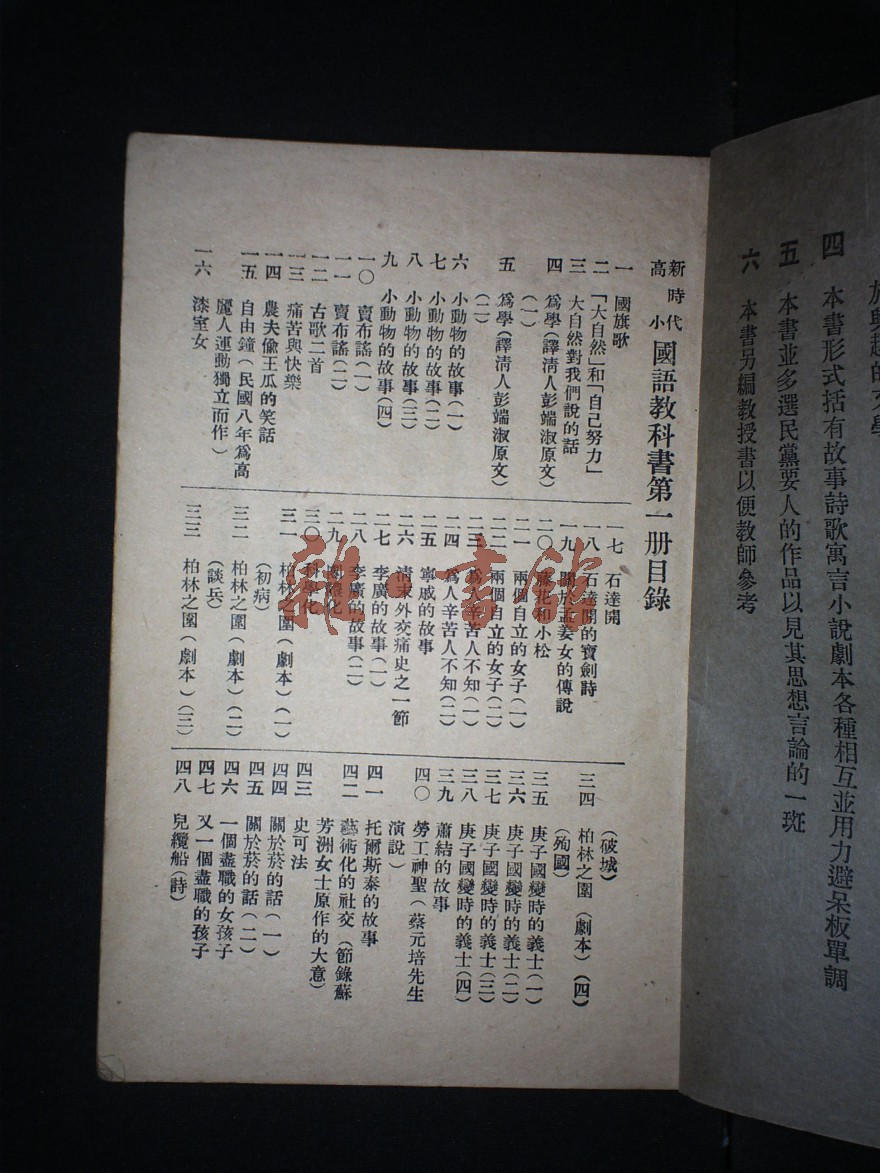 四 本書形式括有故事詩歌寓言小說劇本各種相互並用力避呆板單調
五 本書並多選民黨要人的作品以見其思想言論的一斑
六 本書另編教授書以便教師參考
新時代
高小
國語教科書第一册目錄
一 國旗歌
二 「大自然」和「自己努力」
三 大自然對我們說的話
四 爲學(譯淸人彭端淑原文)
(一)
五 爲學(譯淸人彭端淑原文)
(二)
六 小動物的故事(一)
七 小動物的故事(二)
八 小動物的故事(三)
九 小動物的故事(四)
一〇 賣布謠(一)
一一 賣布謠(二)
一二 古歌二首
一三 痛苦與快樂
一四 農夫偸王瓜的笑話
一五 自由鐘(民國八年爲高
麗人運動獨立而作)
一六 漆室女
一七 石達開
一八 石達開的寶劍詩
一九 關於孟姜女的傳說
二〇 花和小松
二一 兩個自立的女子(一)
二二 兩個自立的女子(二)
二三 爲人辛苦人不知(一)
二四 爲人辛苦人不知(二)
二五 寧戚的故事
二六 淸末外交痛史之一節
二七 李廣的故事(一)
二八 李廣的故事(二)
二九 化
三〇 科學化
三一 柏林之圍(劇本)(一)
(初病)
三二 柏林之圍(劇本)(二)
(談兵)
三三 柏林之圍(劇本)(三)
(破城)
三四 柏林之圍(劇本)(四)
(殉國)
三五 庚子國變時的義士(一)
三六 庚子國變時的義士(二)
三七 庚子國變時的義士(三)
三八 庚子國變時的義士(四)
三九 蕭結的故事
四〇 勞工神聖(蔡元培先生
演說)
四一 托爾斯泰的故事
四二 藝術化的社交(節錄蘇
芳洲女士原作的大意)
四三 史可法
四四 關於菸的話(一)
四五 關於菸的話(二)
四六 一個盡職的女孩子
四七 又一個盡職的孩子
四八 兒纜船(詩)
雜書館